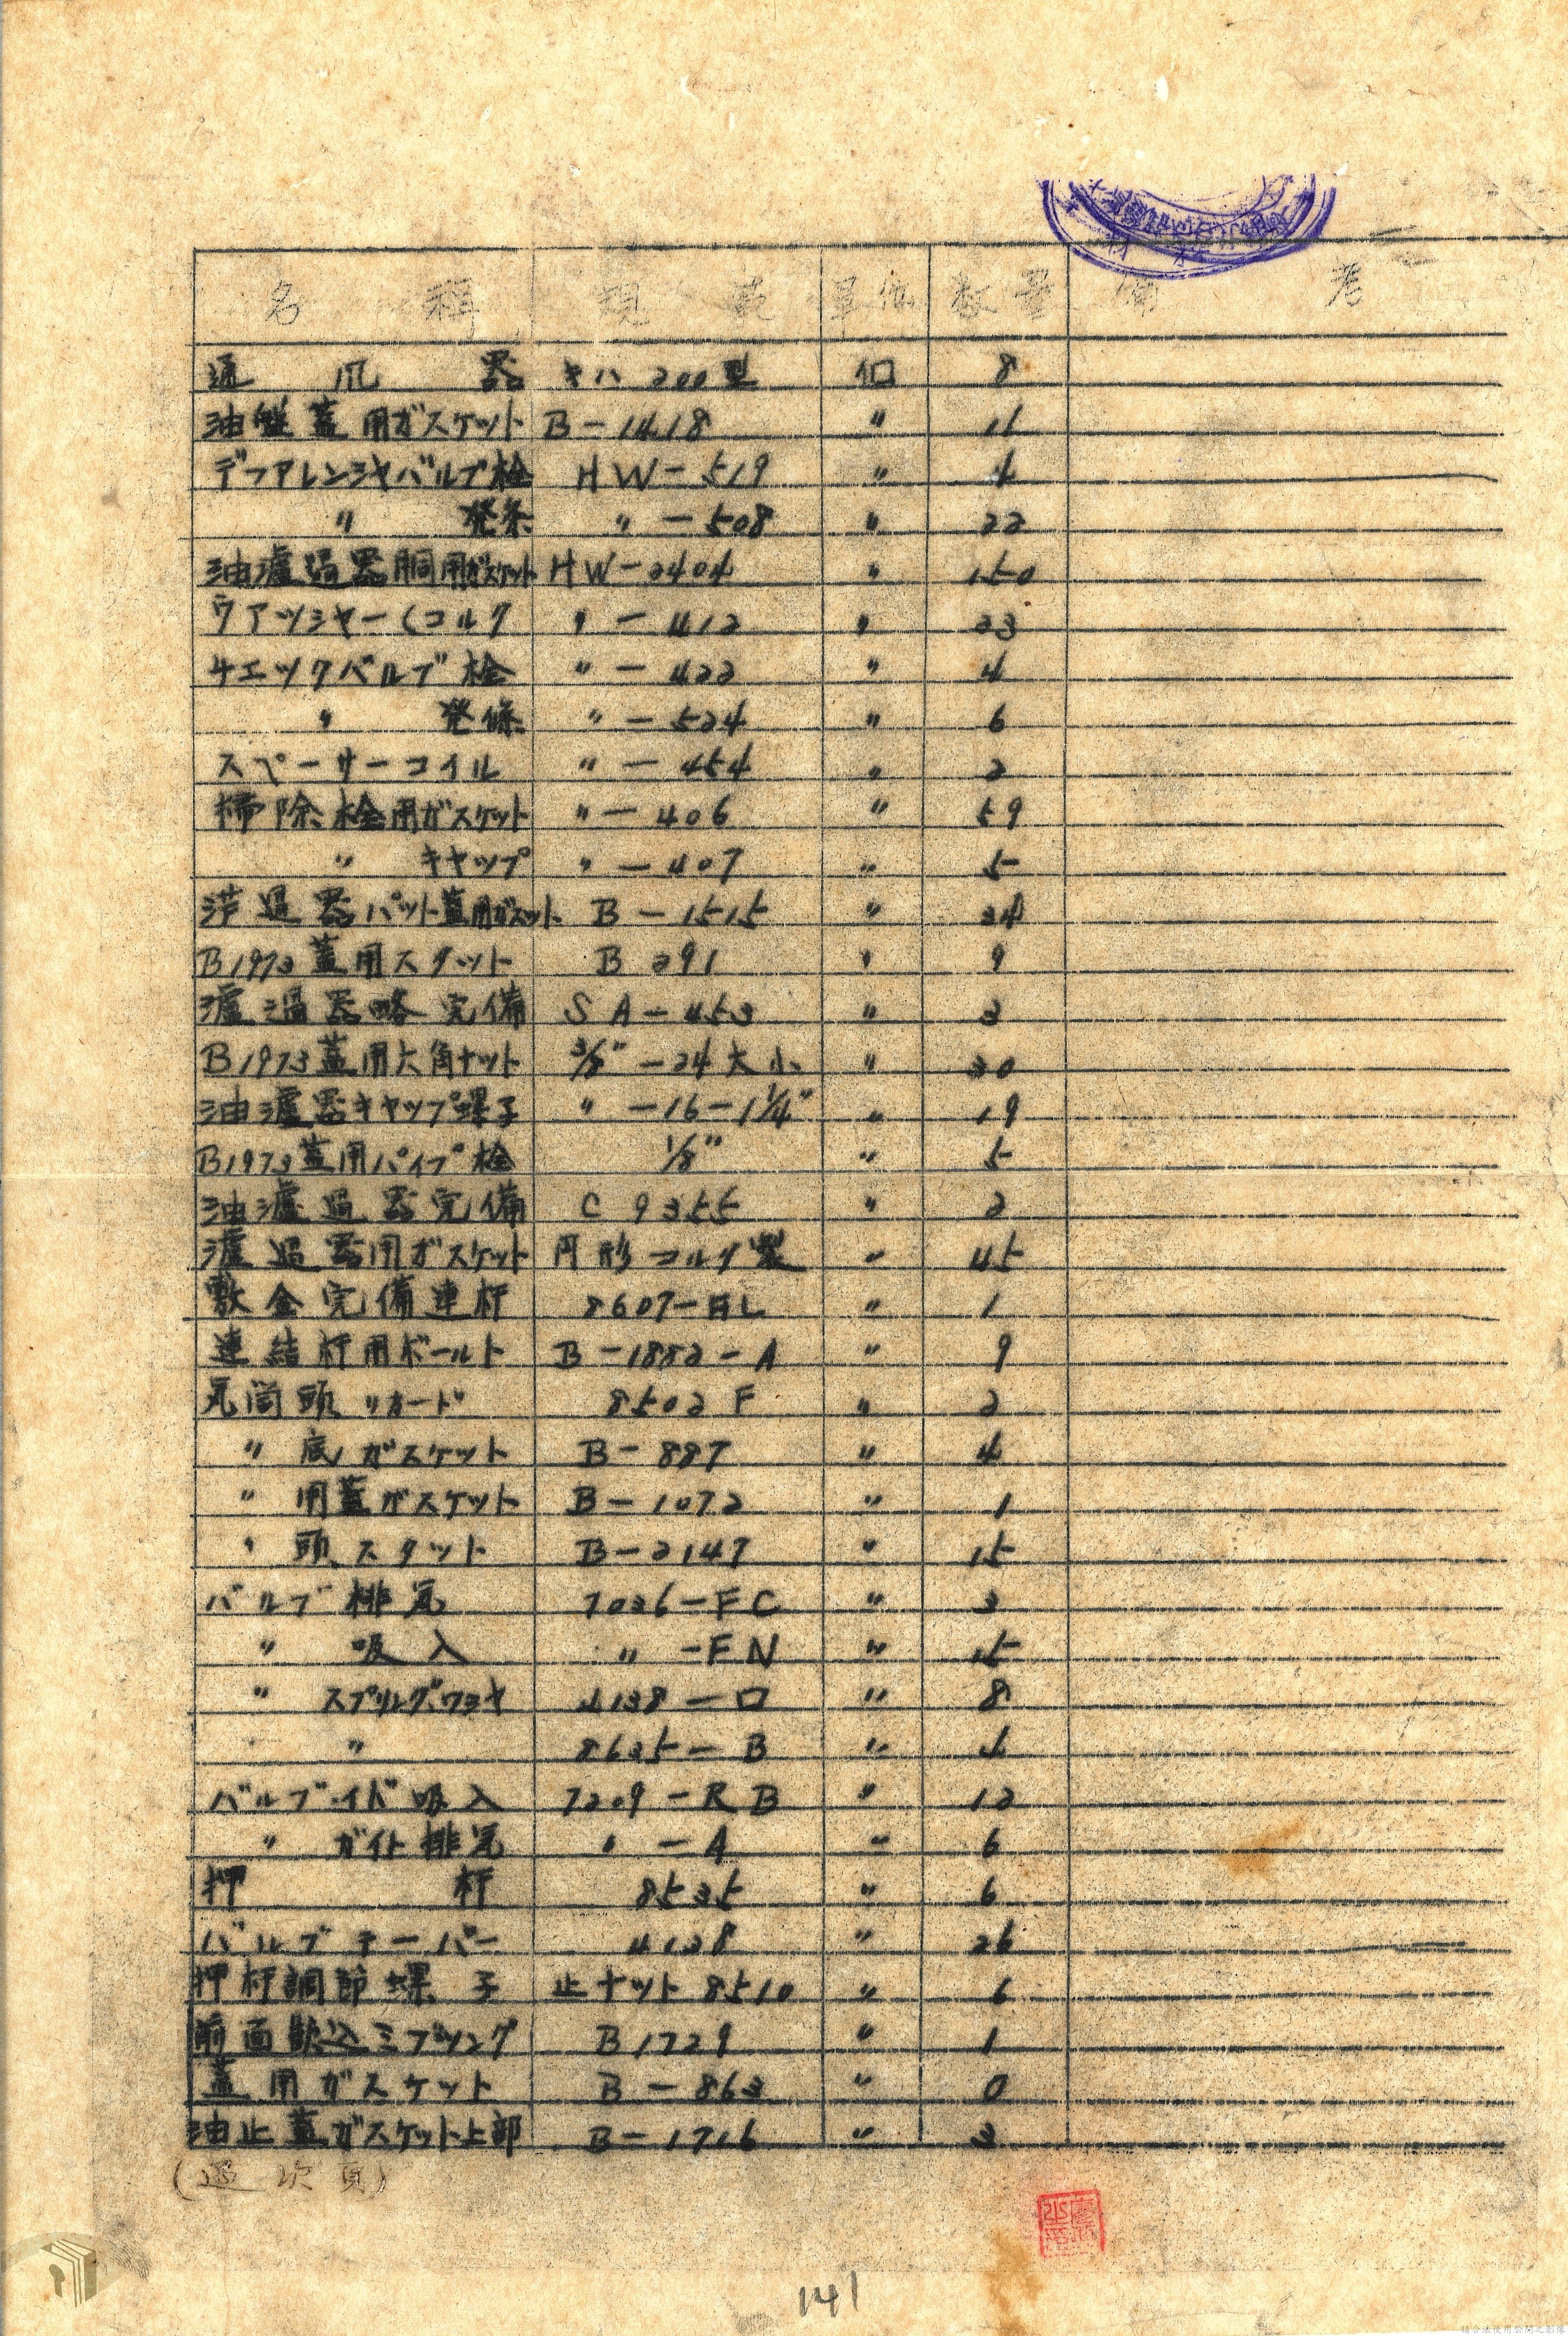 名稱 規範 單位 数量 備考
通風器 キハ200型 個 8
油盤蓋用ガスケット B-1418 〃 11
デフアレンシヤバルブ栓 HW-519 〃 4
〃 発条 〃-508 〃 22
油濾過器胴用ガスケット HW-2404 〃 150
ワアツシヤー(コルク 〃-412 〃 23
チエックバルブ栓 〃-422 〃 4
〃 発條 〃-524 〃 6
スペーサーコイル 〃-454 〃 2
掃除栓用ガスケット 〃-406 〃 59
〃 キヤップ 〃-407 〃 5
過器パット蓋用ガスケット B-1515 〃 24
B1973蓋用スタット B291 〃 9
濾過器略完備 SA-453 〃 3
B1973蓋用六角ナット 3/8"-24大小 〃 30
油濾器キヤップ螺子 〃-16-1 1/4" 〃 19
B1973蓋用パイプ栓 1/8" 〃 5
油濾過器完備 C9355 〃 2
濾過器用ガスケット 円形コルク製 〃 45
敷金完備連杆 8607- 〃 1
連結杆用ボールト B-1852-A 〃 9
気筒頭リカード 8502F 〃 2
〃底ガスケット B-887 〃 4
〃用蓋ガスケット B-1072 〃 1
〃頭スタット B-2147 〃 15
バルブ排気 7036-FC 〃 3
〃 吸入 〃-FN 〃 15
〃 スプリングワシヤ 4138-ロ 〃 8
〃 8635-B 〃 4
バルブ 吸入 7209-RB 〃 12
〃 ガイト排気 〃-A 〃 6
押杆 8535 〃 6
バルブテーパー 4138 〃 26
押杆調節螺子 止ナット8510 〃 6
前面 B1729 〃 1
蓋用ガスケット B-863 〃 0
油止蓋ガスケット上部 B-1716 〃 3
(過次頁)
141